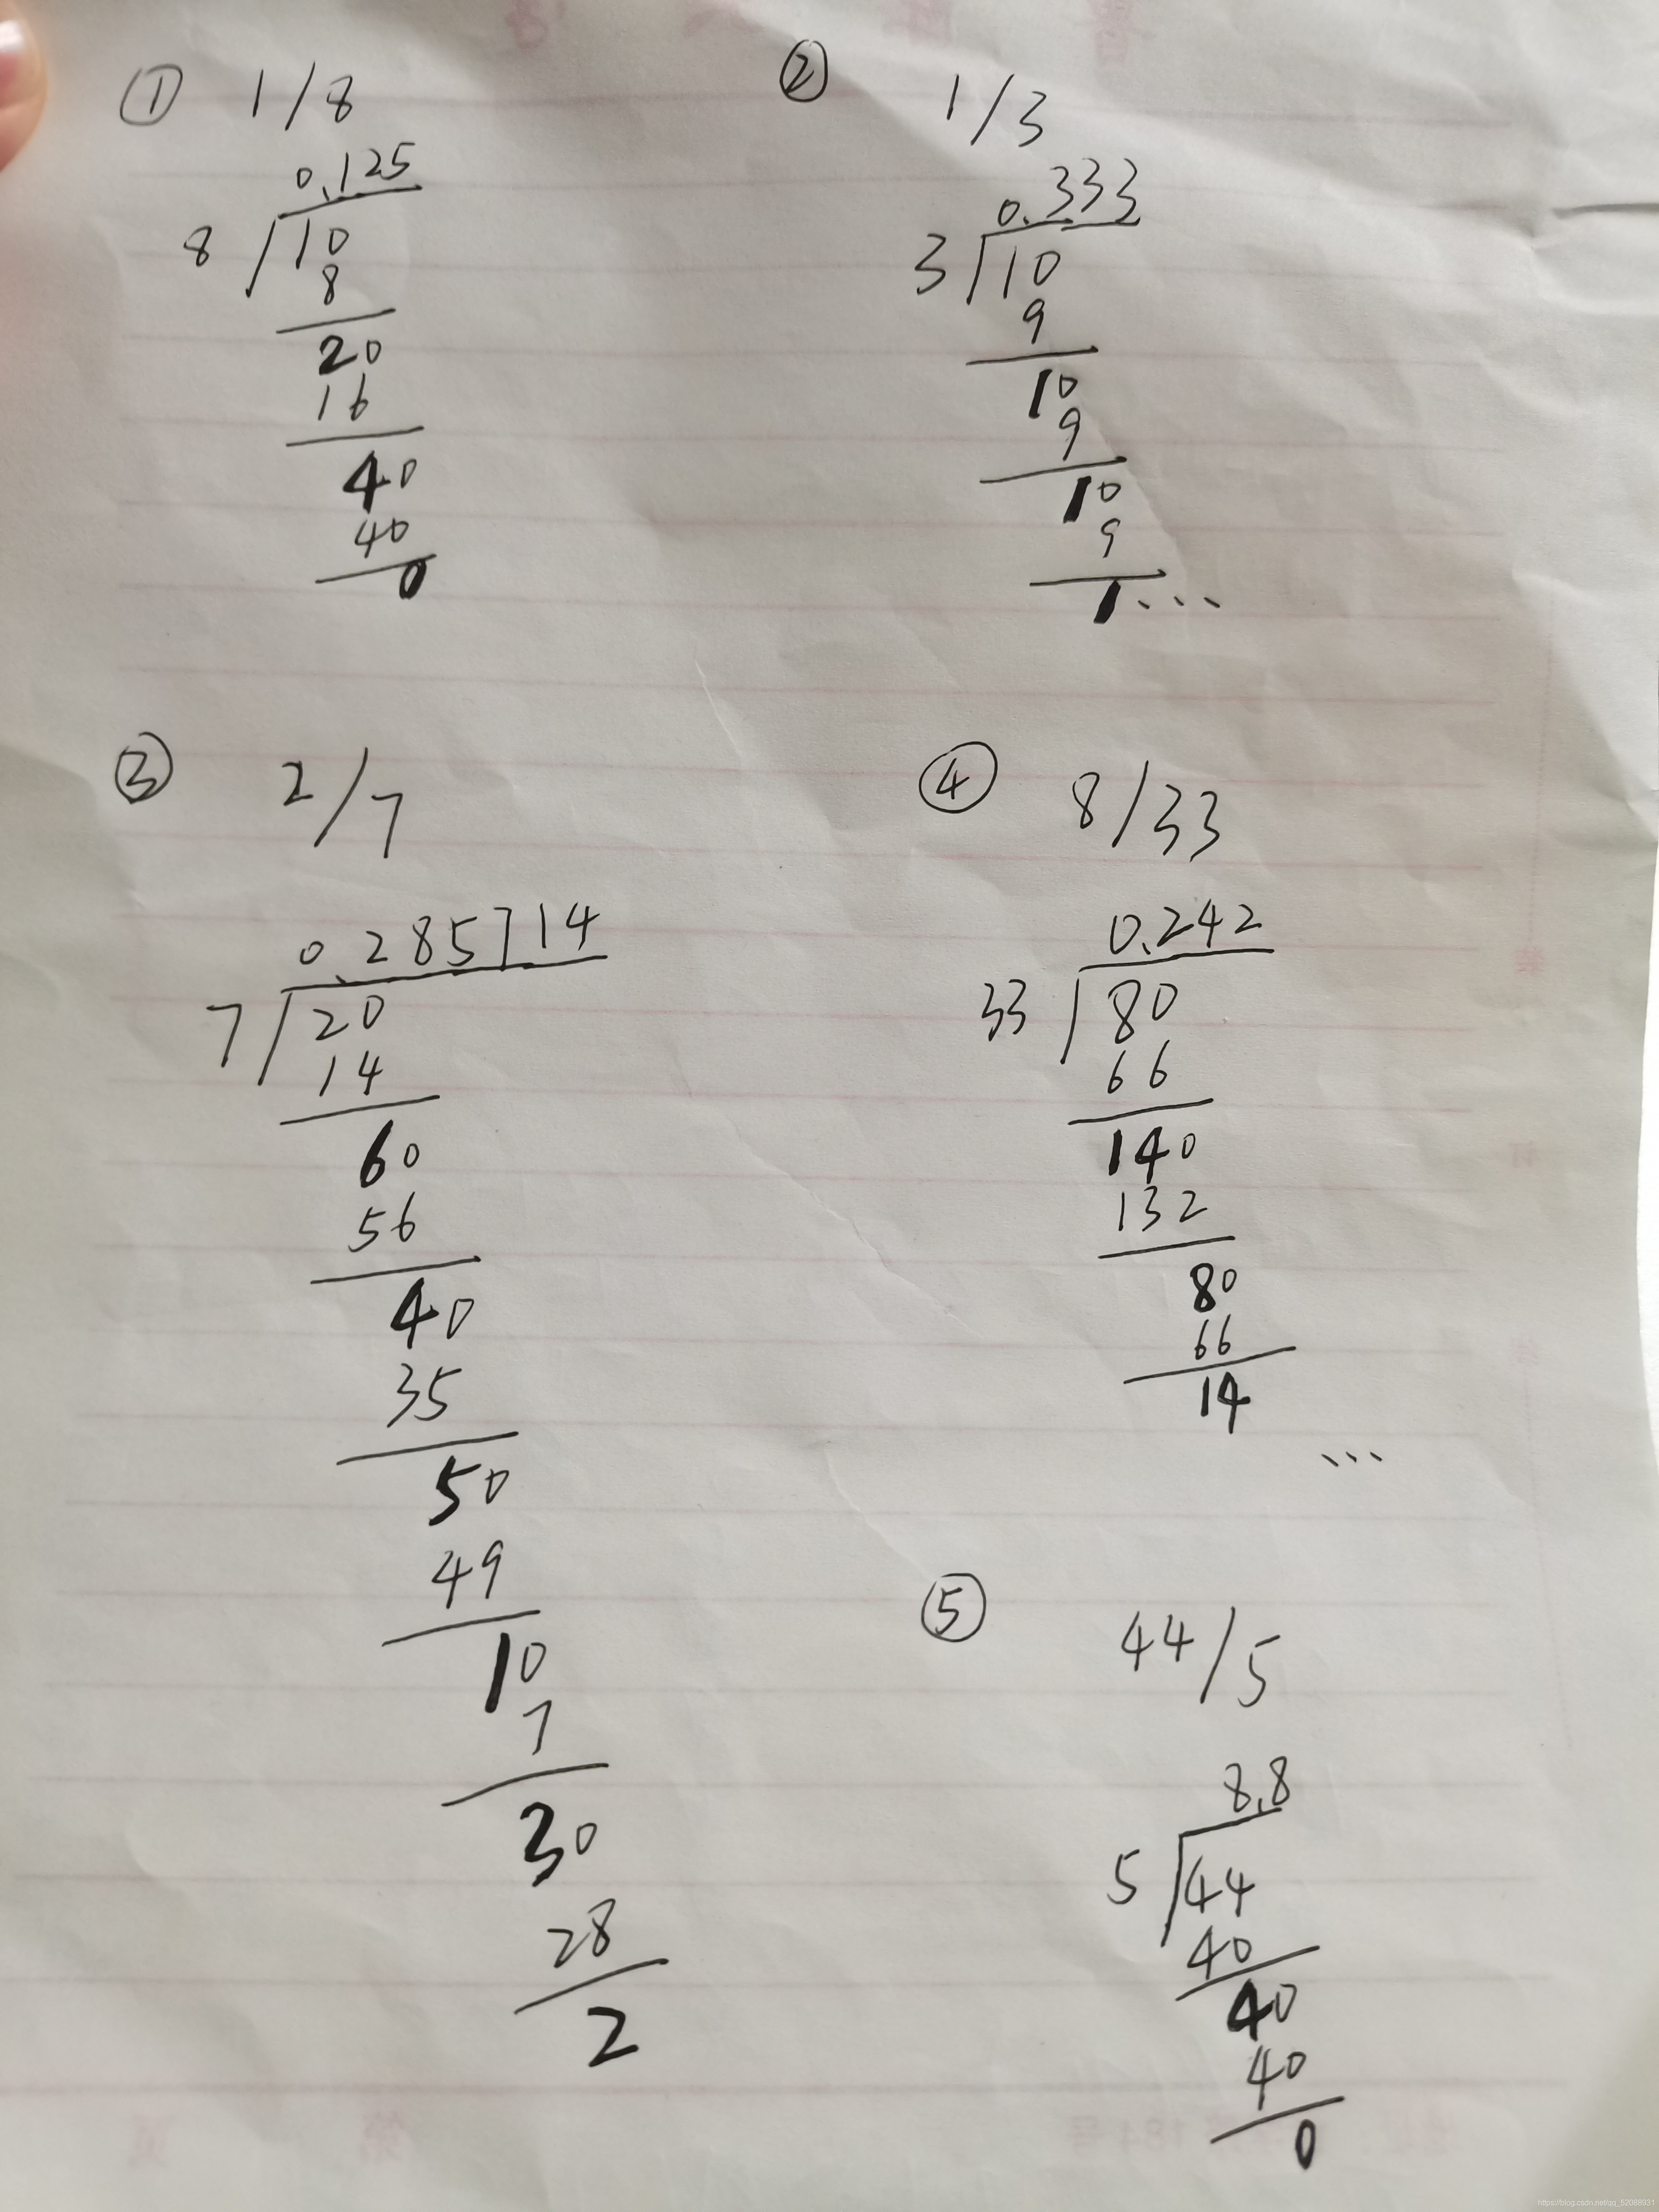 ① 1/8
0.125
8 10
8
20
16
40
40
0
② 1/3
0.333
3 10
9
10
9
10
9
1...
③ 2/7
0.285714
7 20
14
60
56
40
35
50
49
10
7
30
28
2
④ 8/33
0.242
33 80
66
140
132
80
66
14
...
⑤ 44/5
8.8
5 44
40
40
40
0
https://blog.csdn.net/qq_52068931